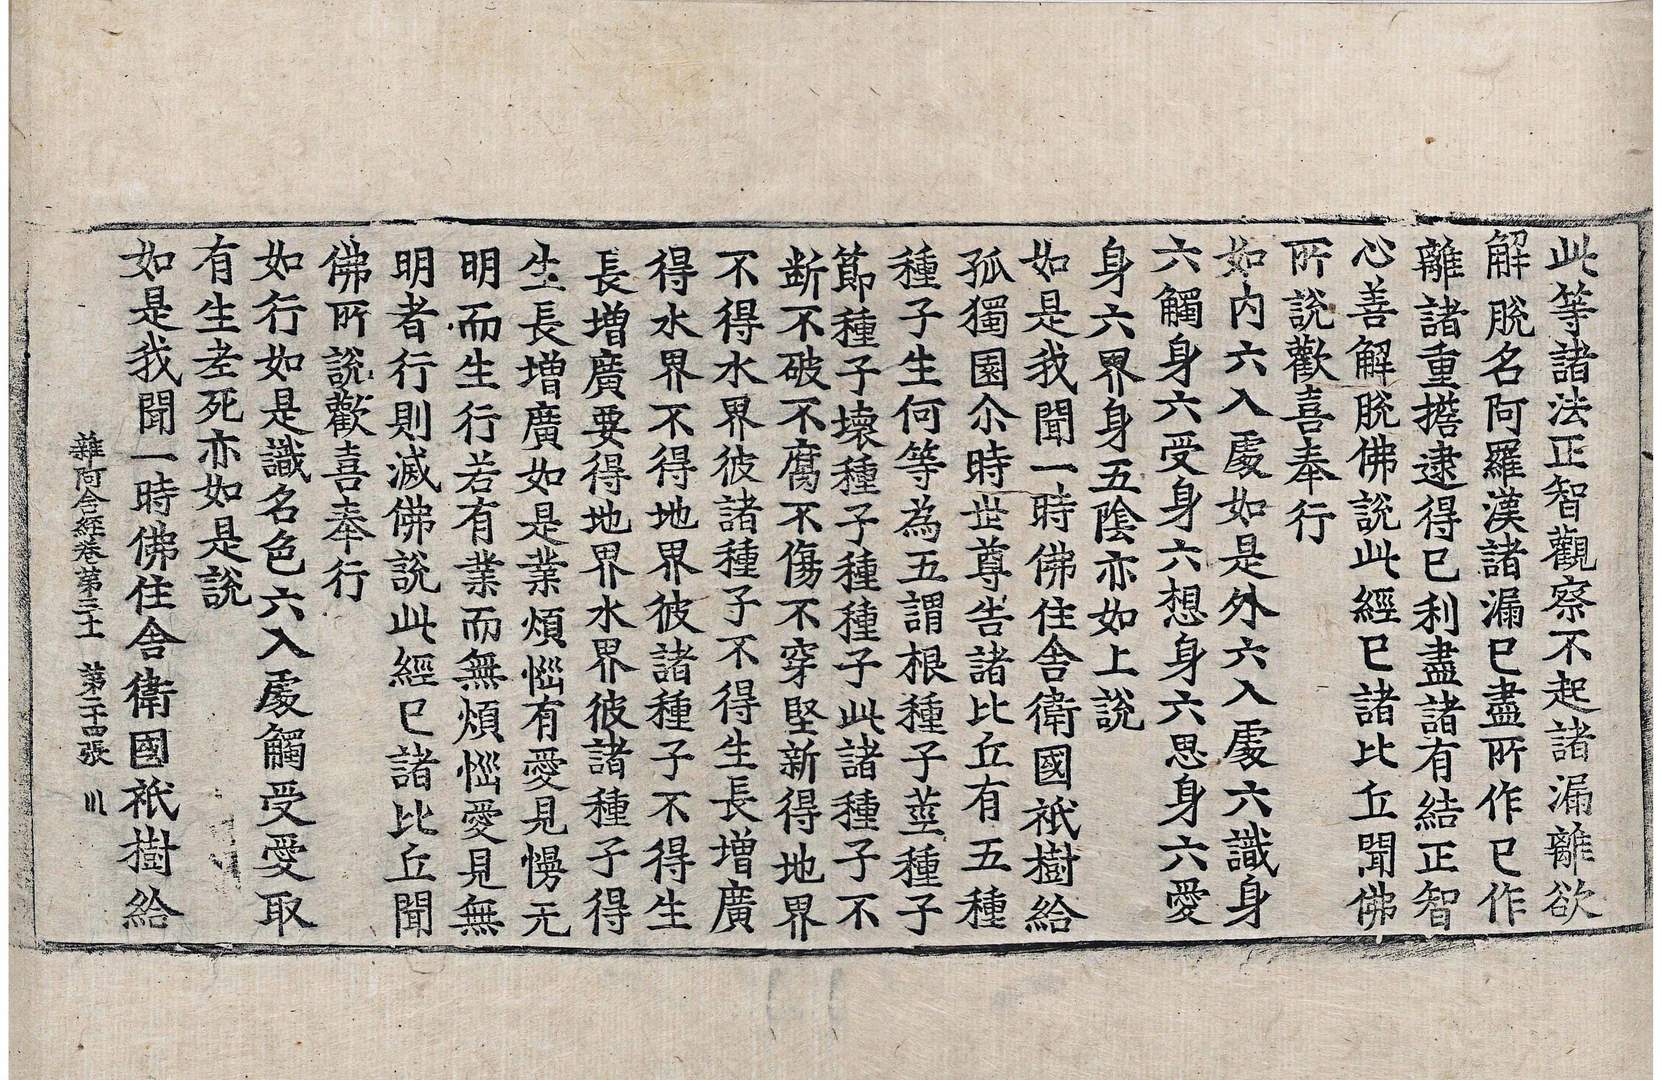 此等諸法正智觀察不起諸漏離欲
解脫名阿羅漢諸漏已盡所作已作
離諸重擔逮得已利盡諸有結正智
心善解脫佛說此經已諸比丘聞佛
所說歡喜奉行
如內六入處如是外六入處六識身
六觸身六受身六想身六思身六愛
身六界身五陰亦如上說
如是我聞一時佛住舍衛國祇樹給
孤獨園尒時世尊告諸比丘有五種
種子生何等為五謂根種子莖種子
節種子壞種子種種子此諸種子不
斷不破不腐不傷不穿堅新得地界
不得水界彼諸種子不得生長增廣
得水界不得地界彼諸種子不得生
長增廣要得地界水界彼諸種子得
生長增廣如是業煩惱有愛見慢无
明而生行若有業而無煩惱愛見無
明者行則滅佛說此經已諸比丘聞
佛所說歡喜奉行
如行如是識名色六入處觸受愛取
有生老死亦如是說
如是我聞一時佛住舍衛國祇樹給
雜阿含經卷第三十一 第二十四張 川